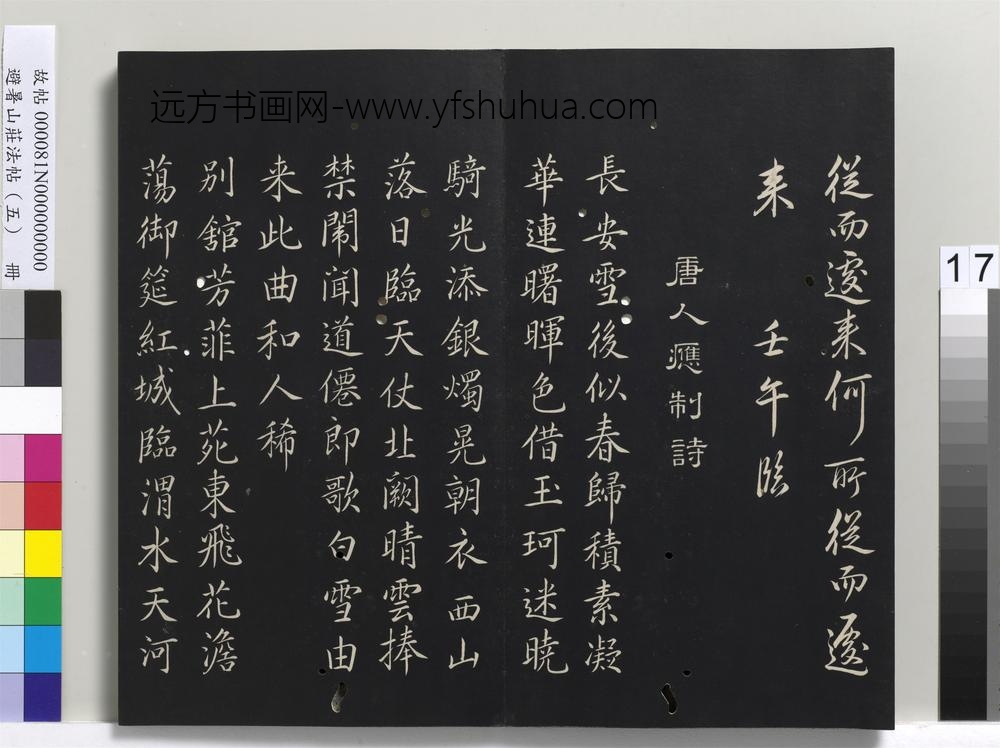 远方书画网-www.yfshuhua.com
故帖000081N000000000
避暑山莊法帖（五） 冊
17
從而逡来何所從而逡
来 壬午臨
唐人應制詩
長安雪後似春歸積素凝
華連曙暉色借玉珂迷曉
騎光添銀燭晃朝衣西山
落日臨天仗北闕晴雲捧
禁闈聞道僊郎歌白雪由
来此曲和人稀
別舘芳菲上苑東飛花澹
蕩御筵紅城臨渭水天河